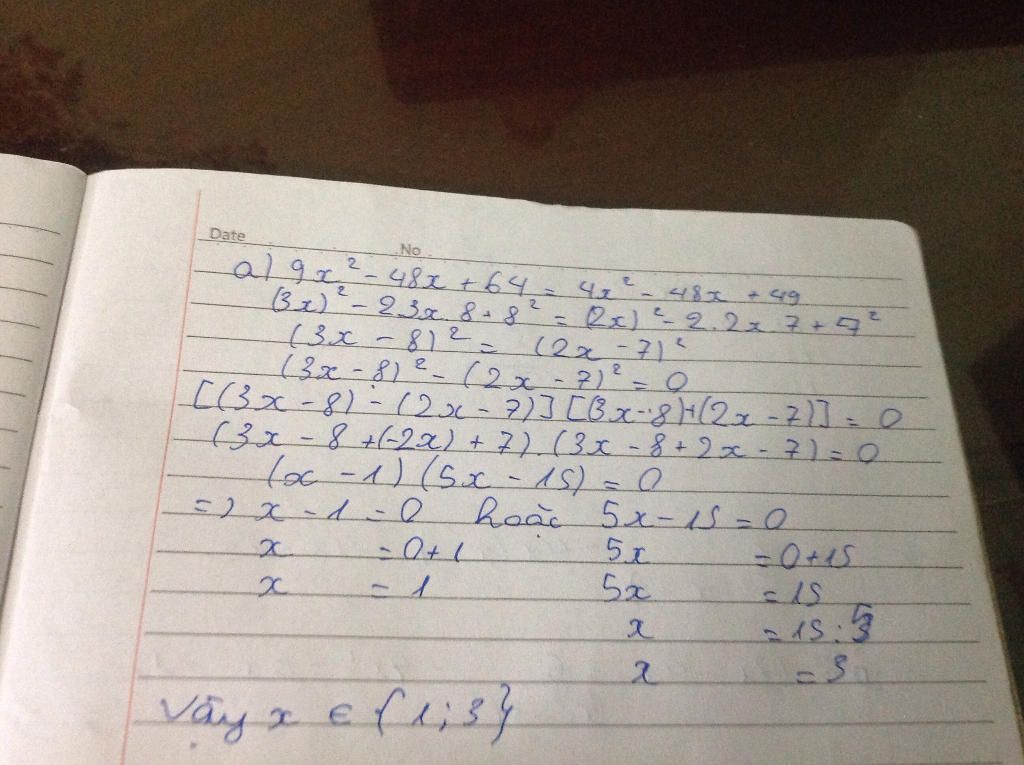 Date No
a) 9x² - 48x + 64 = 4x² - 48x + 49
(3x)² - 2.3x.8 + 8² = (2x)² - 2.2x.7 + 7²
(3x - 8)² = (2x - 7)²
(3x - 8)² - (2x - 7)² = 0
[(3x - 8) - (2x - 7)] [(3x - 8) + (2x - 7)] = 0
(3x - 8 + (-2x) + 7).(3x - 8 + 2x - 7) = 0
(x - 1) (5x - 15) = 0
=) x - 1 = 0 hoặc 5x - 15 = 0
x = 0 + 1 5x = 0 + 15
x = 1 5x = 15
x = 15 : 5
x = 3
Vậy x ∈ {1; 3}